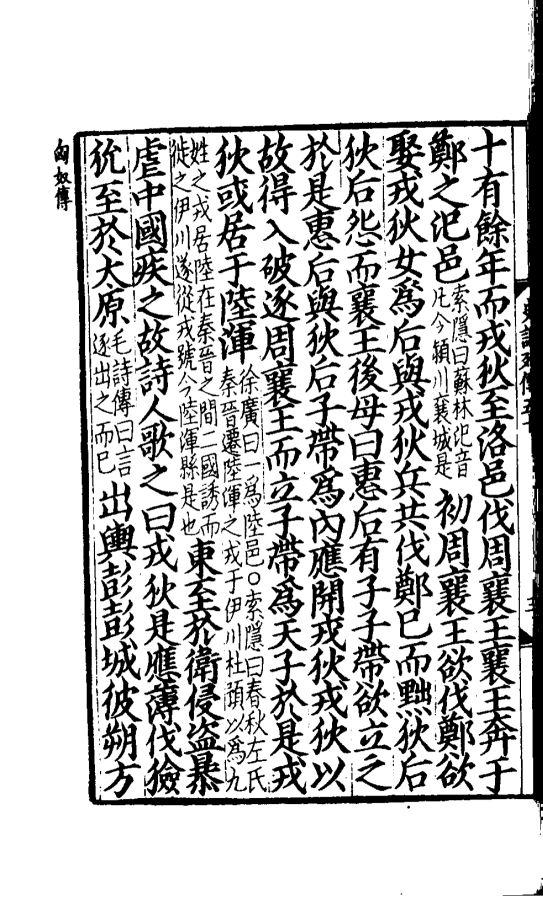 十有餘年而戎狄至洛邑伐周襄王襄王奔于
鄭之氾邑索隱曰蘇林氾音凡今潁川襄城是初周襄王欲伐鄭欲
娶戎狄女爲后與戎狄兵共伐鄭已而黜狄后
狄后怨而襄王後母曰惠后有子子帶欲立之
於是惠后與狄后子帶爲內應開戎狄戎狄以
故得入破逐周襄王而立子帶爲天子於是戎
狄或居于陸渾徐廣曰一爲陸邑○索隱曰春秋左氏秦晉遷陸渾之戎于伊川杜預以爲九
姓之戎居陸在秦晉之間二國誘而徙之伊川遂從戎號今陸渾縣是也東至於衛侵盜暴
虐中國疾之故詩人歌之曰戎狄是應薄伐獫
狁至於太原毛詩傳曰言逐出之而已出輿彭彭城彼朔方
匈奴傳